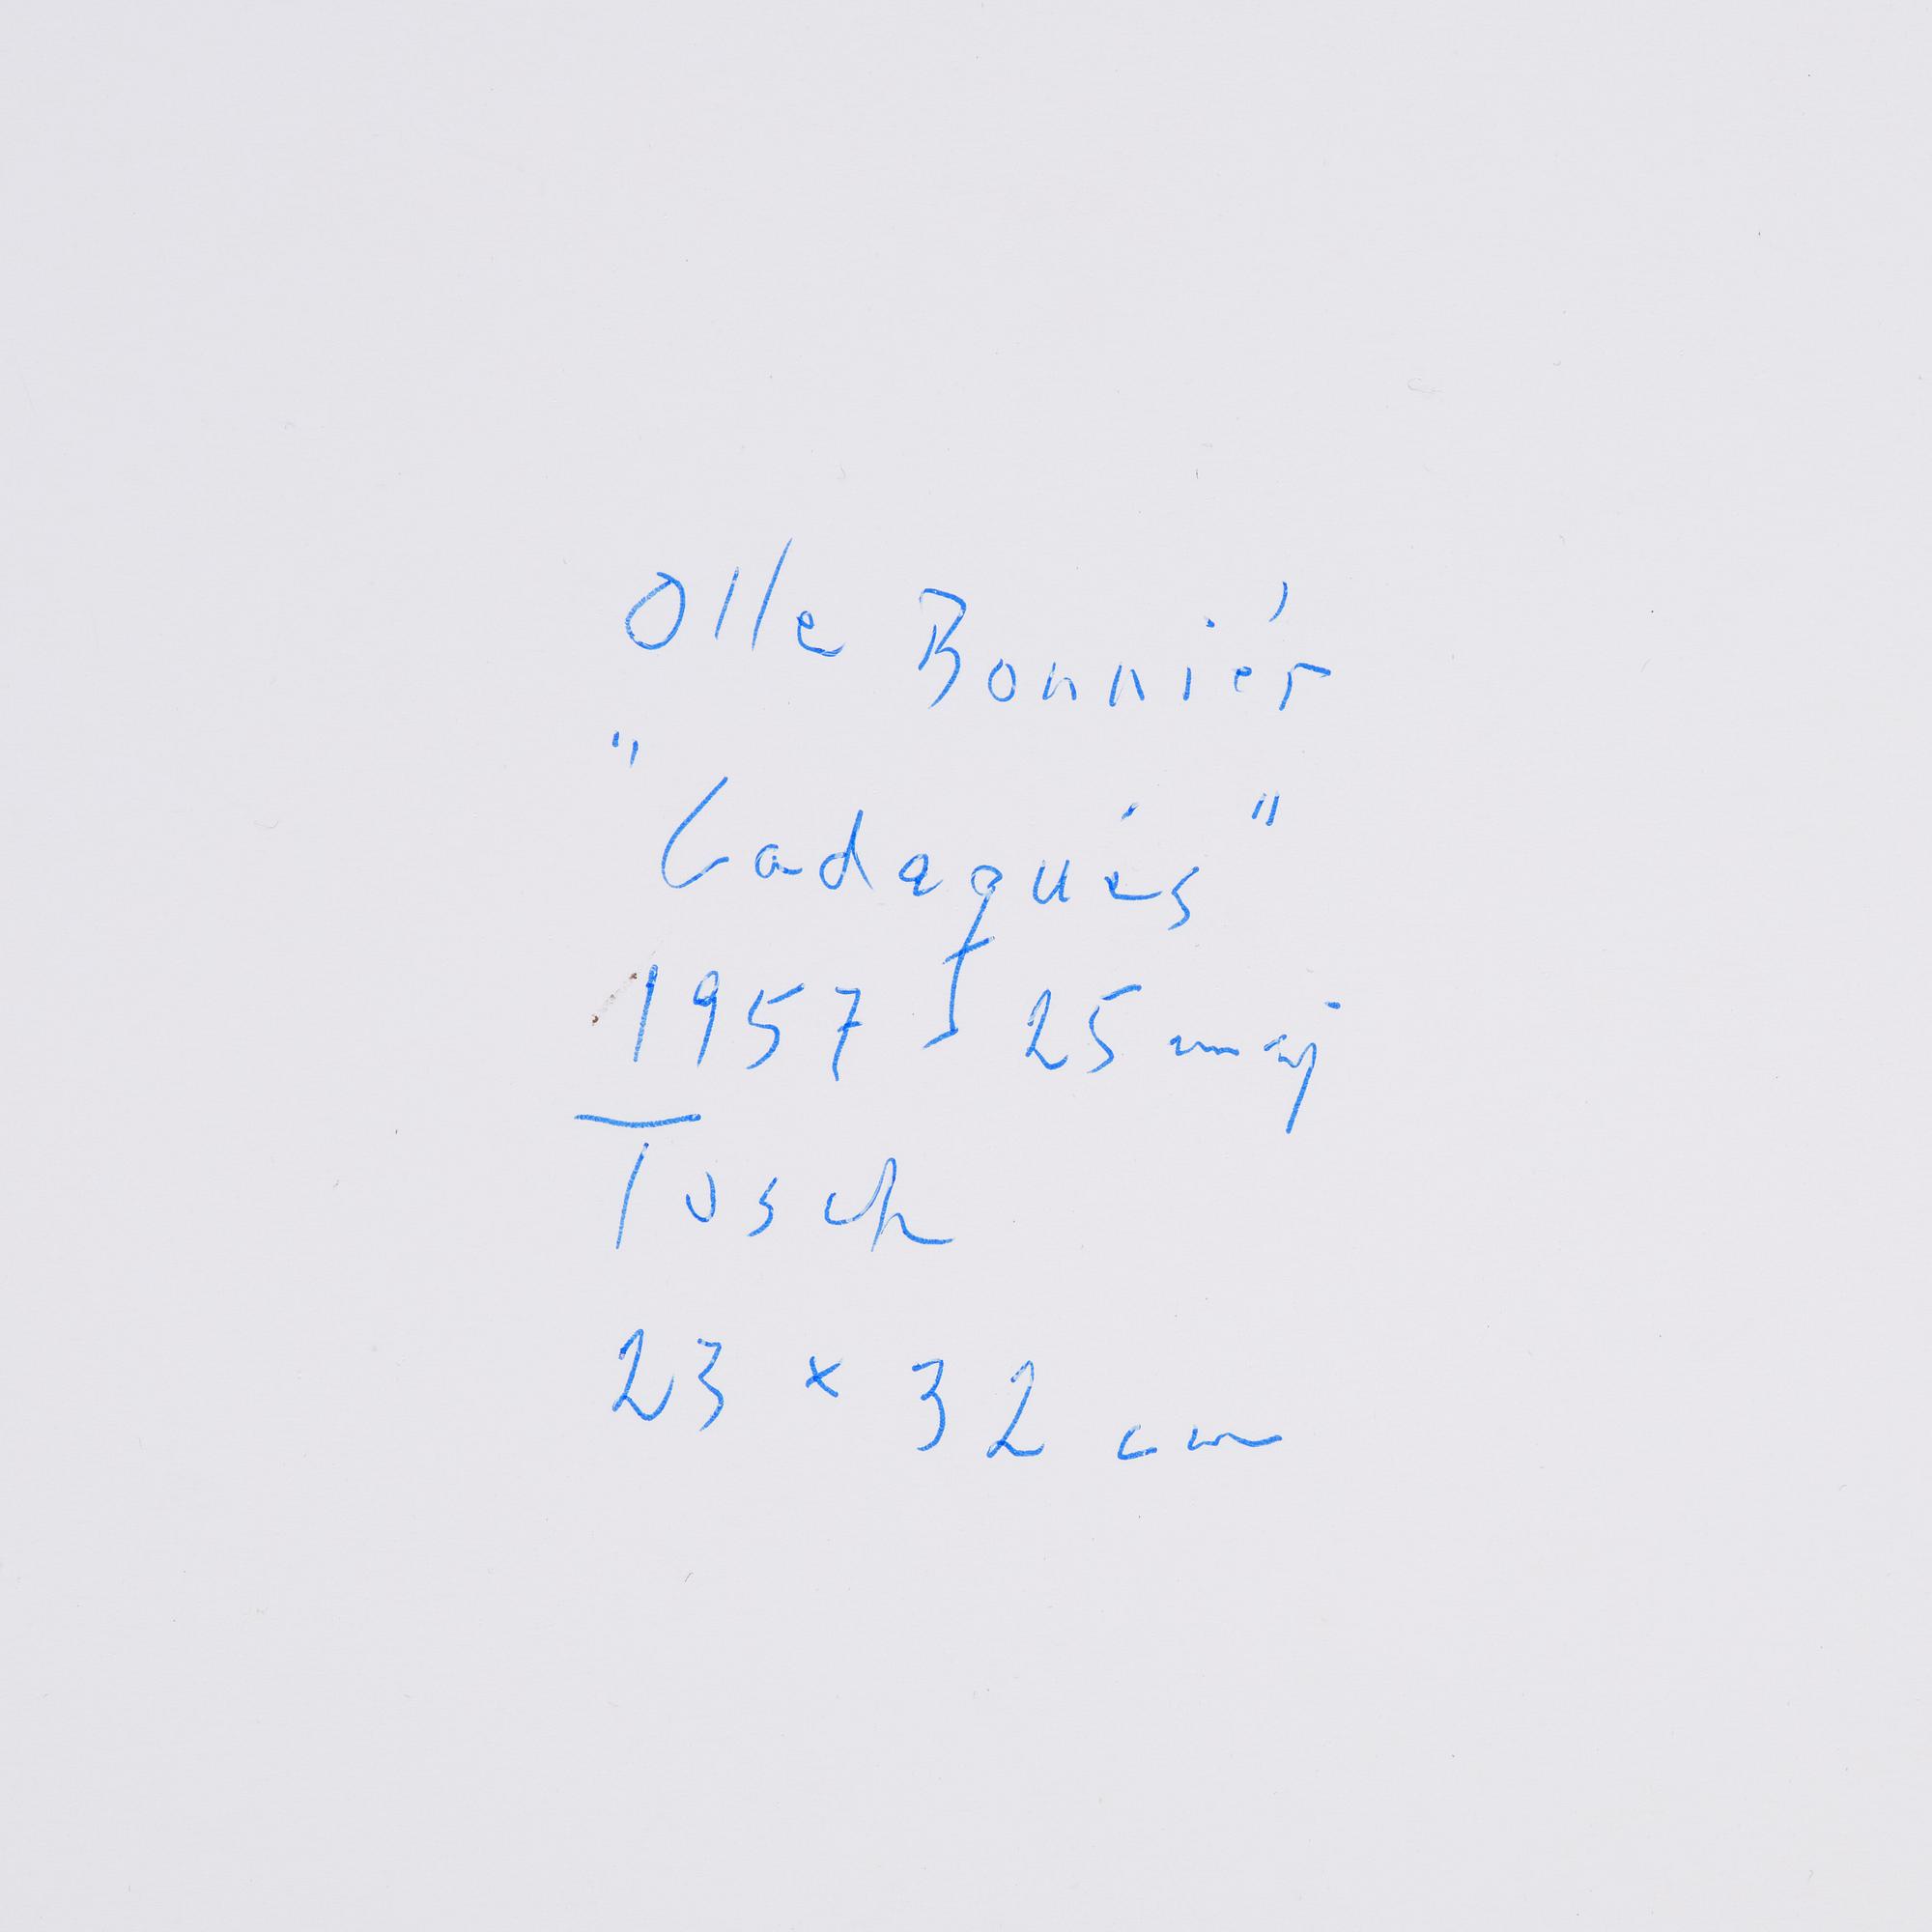 Olle Bonniér
"Cadaqués"
1957 25 maj
Tusch
23 × 32 cm